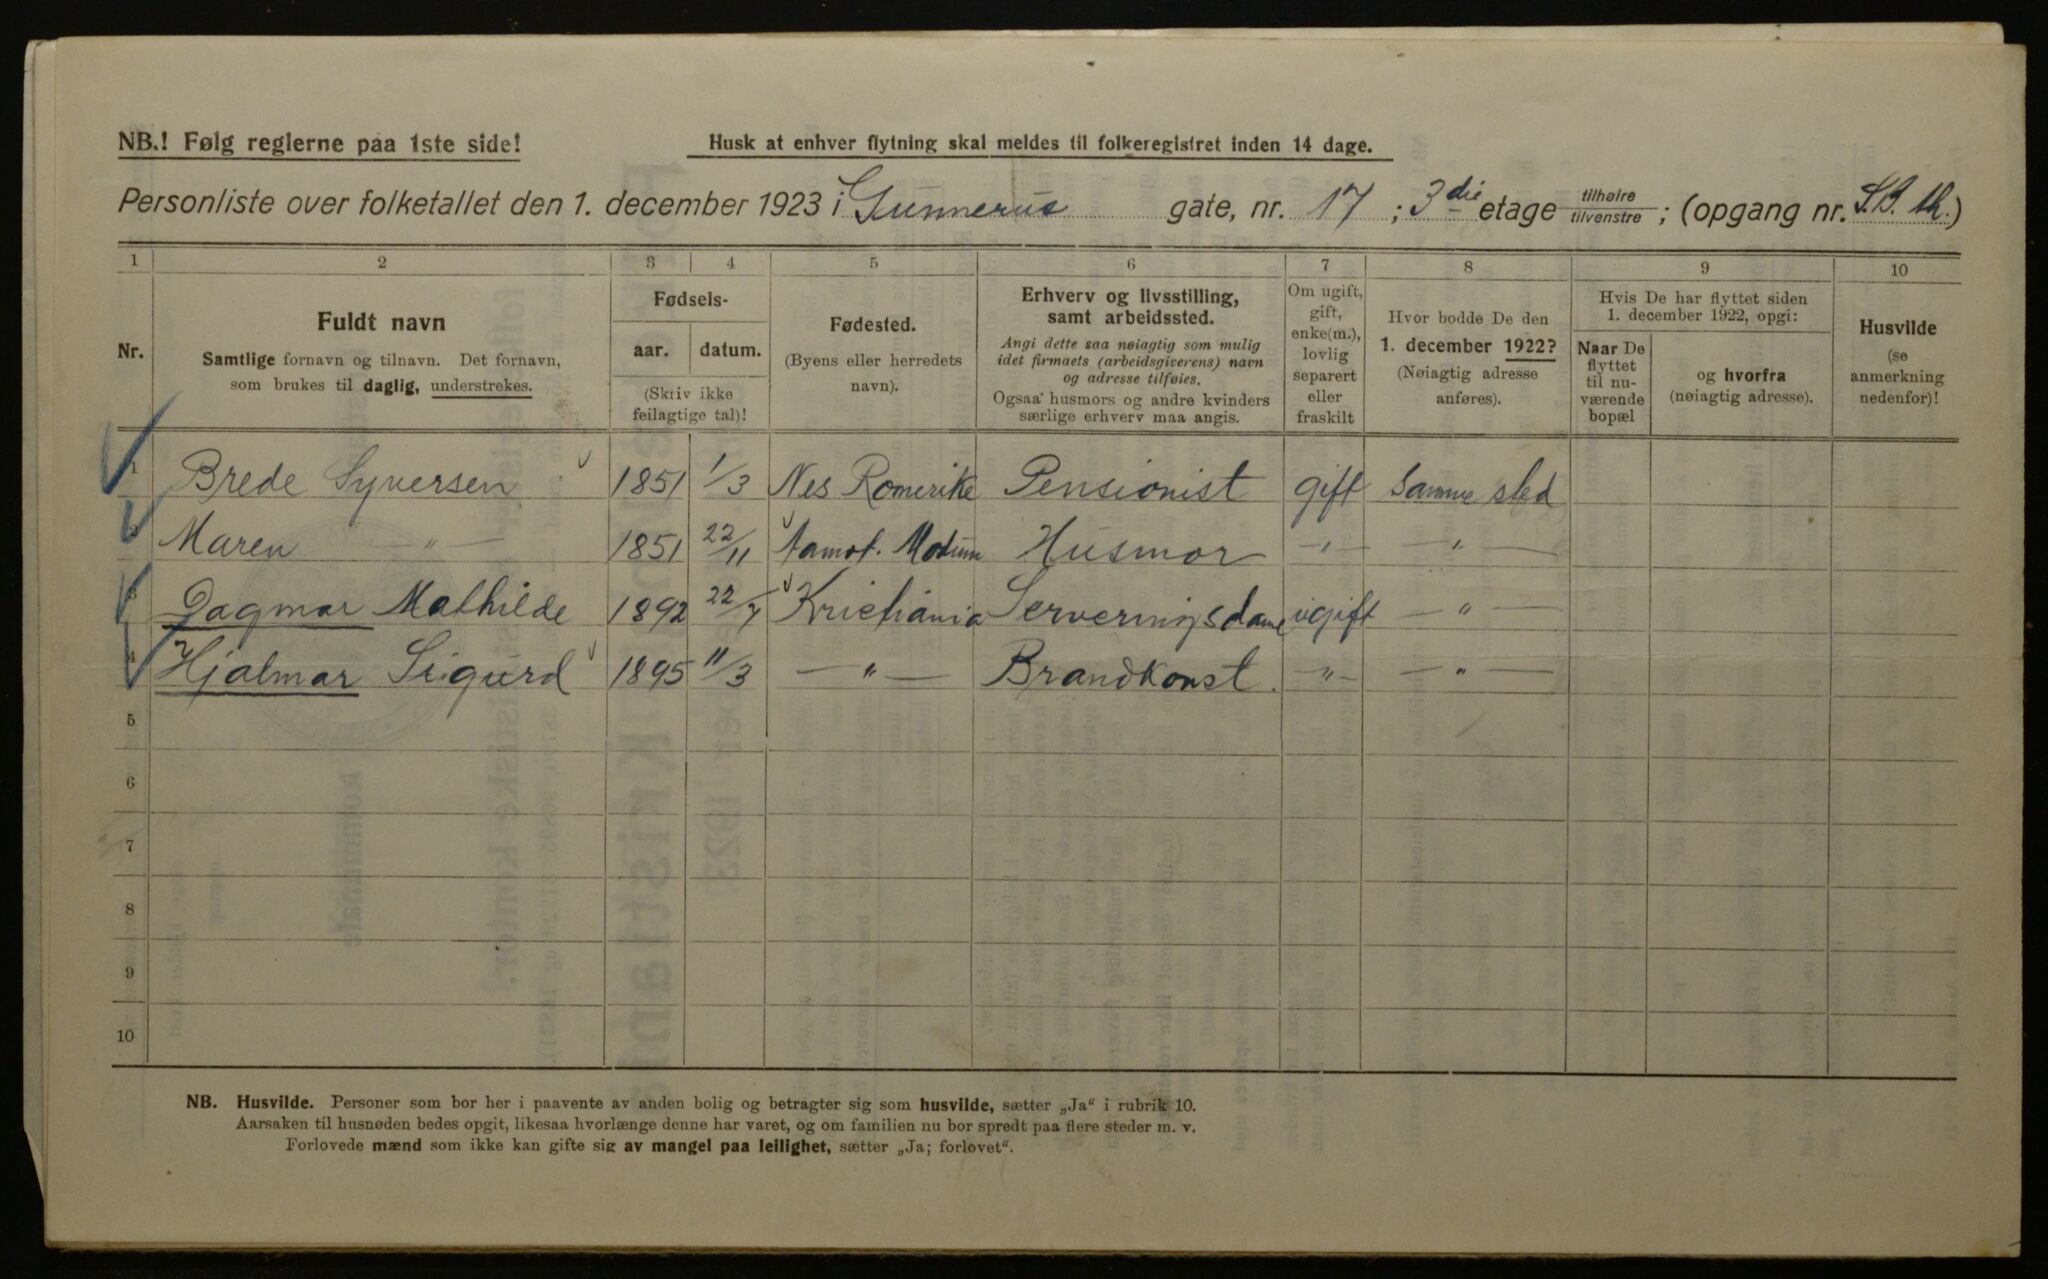 NB.! Følg reglerne paa 1ste side!
Husk at enhver flytning skal meldes til folkeregistret inden 14 dage.
Personliste over folketallet den 1. december 1923 i Gunnerus gate, nr. 17 ; 3die etage tilhøire tilvenstre ; (opgang nr. S.B. th.)
1 2 3 4 5 6 7 8 9 10
Nr.
Fuldt navn
Samtlige fornavn og tilnavn. Det fornavn,
som brukes til daglig, understrekes.
Fødsels-
aar. datum.
(Skriv ikke
feilagtige tal)!
Fødested.
(Byens eller herredets
navn).
Erhverv og livsstilling,
samt arbeidssted.
Angi dette saa nøiagtig som mulig
idet firmaets (arbeidsgiverens) navn
og adresse tilføies.
Ogsaa husmors og andre kvinders
særlige erhverv maa angis.
Om ugift,
gift,
enke(m.),
lovlig
separert
eller
fraskilt
Hvor bodde De den
1. december 1922?
(Nøiagtig adresse
anføres).
Hvis De har flyttet siden
1. december 1922, opgi:
Naar De
flyttet
til nu-
værende
bopæl
og hvorfra
(nøiagtig adresse).
Husvilde
(se
anmerkning
nedenfor)!
1 Brede Syversen 1851 1/3 Nes Romerike Pensionist gift Samme sted
2 Maren — " — 1851 22/11 Aamot. Modum Husmor — " — — " —
3 Dagmar Mathilde 1892 22/7 Kristiania Serveringsdame ugift — " —
4 Hjalmar Sigurd 1895 11/3 — " — Brandkonst. — " — — " —
5
6
7
8
9
10
NB. Husvilde. Personer som bor her i paavente av anden bolig og betragter sig som husvilde, sætter „Ja“ i rubrik 10.
Aarsaken til husnøden bedes opgit, likesaa hvorlænge denne har varet, og om familien nu bor spredt paa flere steder m. v.
Forlovede mænd som ikke kan gifte sig av mangel paa leilighet, sætter „Ja; forlovet“.